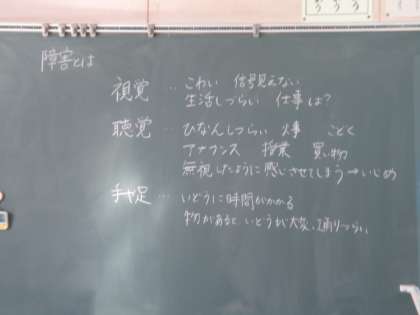 障害とは
視覚 ‥ こわい 信号見えない
生活しづらい 仕事は?
聴覚 ‥ ひなんしづらい 火事 こどく
アナウンス 授業 買い物
無視したように感じさせてしまう→いじめ
手足 … いどうに時間がかかる
物があるといどうが大変、通りづらい